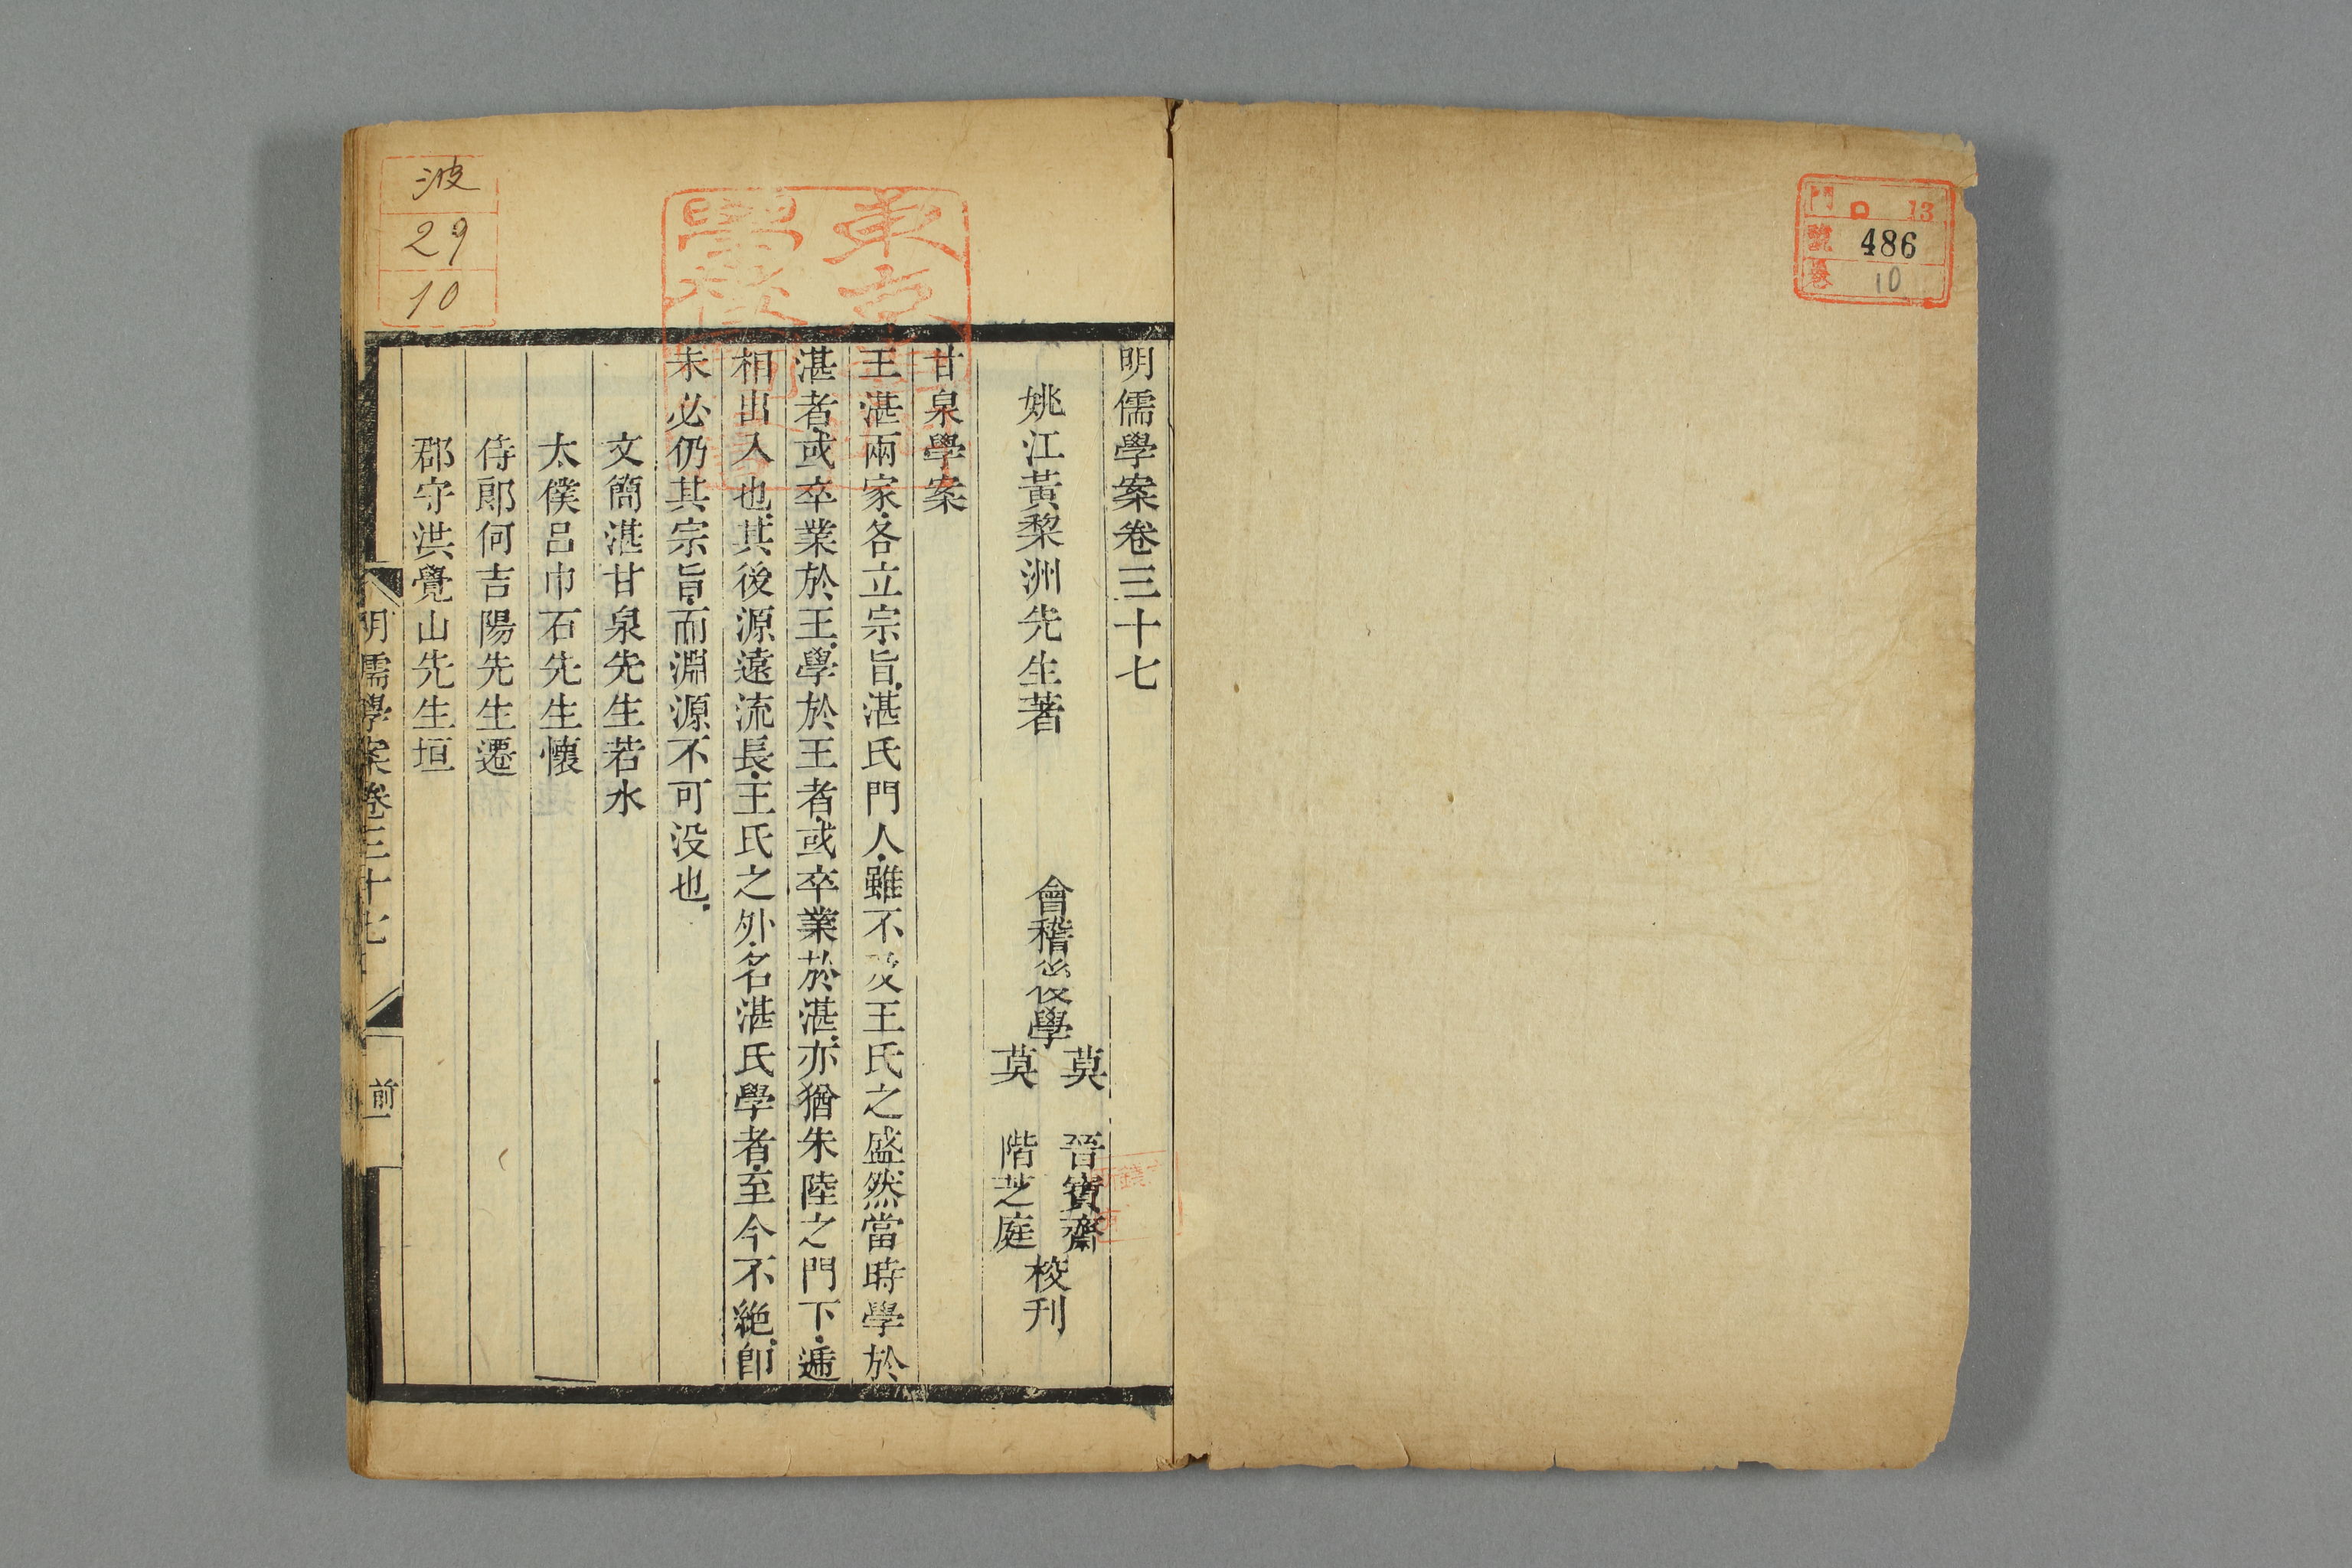 門 13
號 486
卷 10
明儒學案卷三十七
姚江黃梨洲先生著
會稽後學
莫 晉寳齋
莫 階芝庭
校刊
甘泉學案
王湛兩家.各立宗旨.湛氏門人.雖不及王氏之盛.然當時學於
湛者.或卒業於王.學於王者.或卒業於湛.亦猶朱陸之門下.遞
相出入也.其後源遠流長.王氏之外.名湛氏學者.至今不絶.卽
未必仍其宗旨.而淵源不可沒也.
文簡湛甘泉先生若水
太僕呂巾石先生懷
侍郞何吉陽先生遷
郡守洪覺山先生垣
明儒學案卷三十七
前一
波
29
10